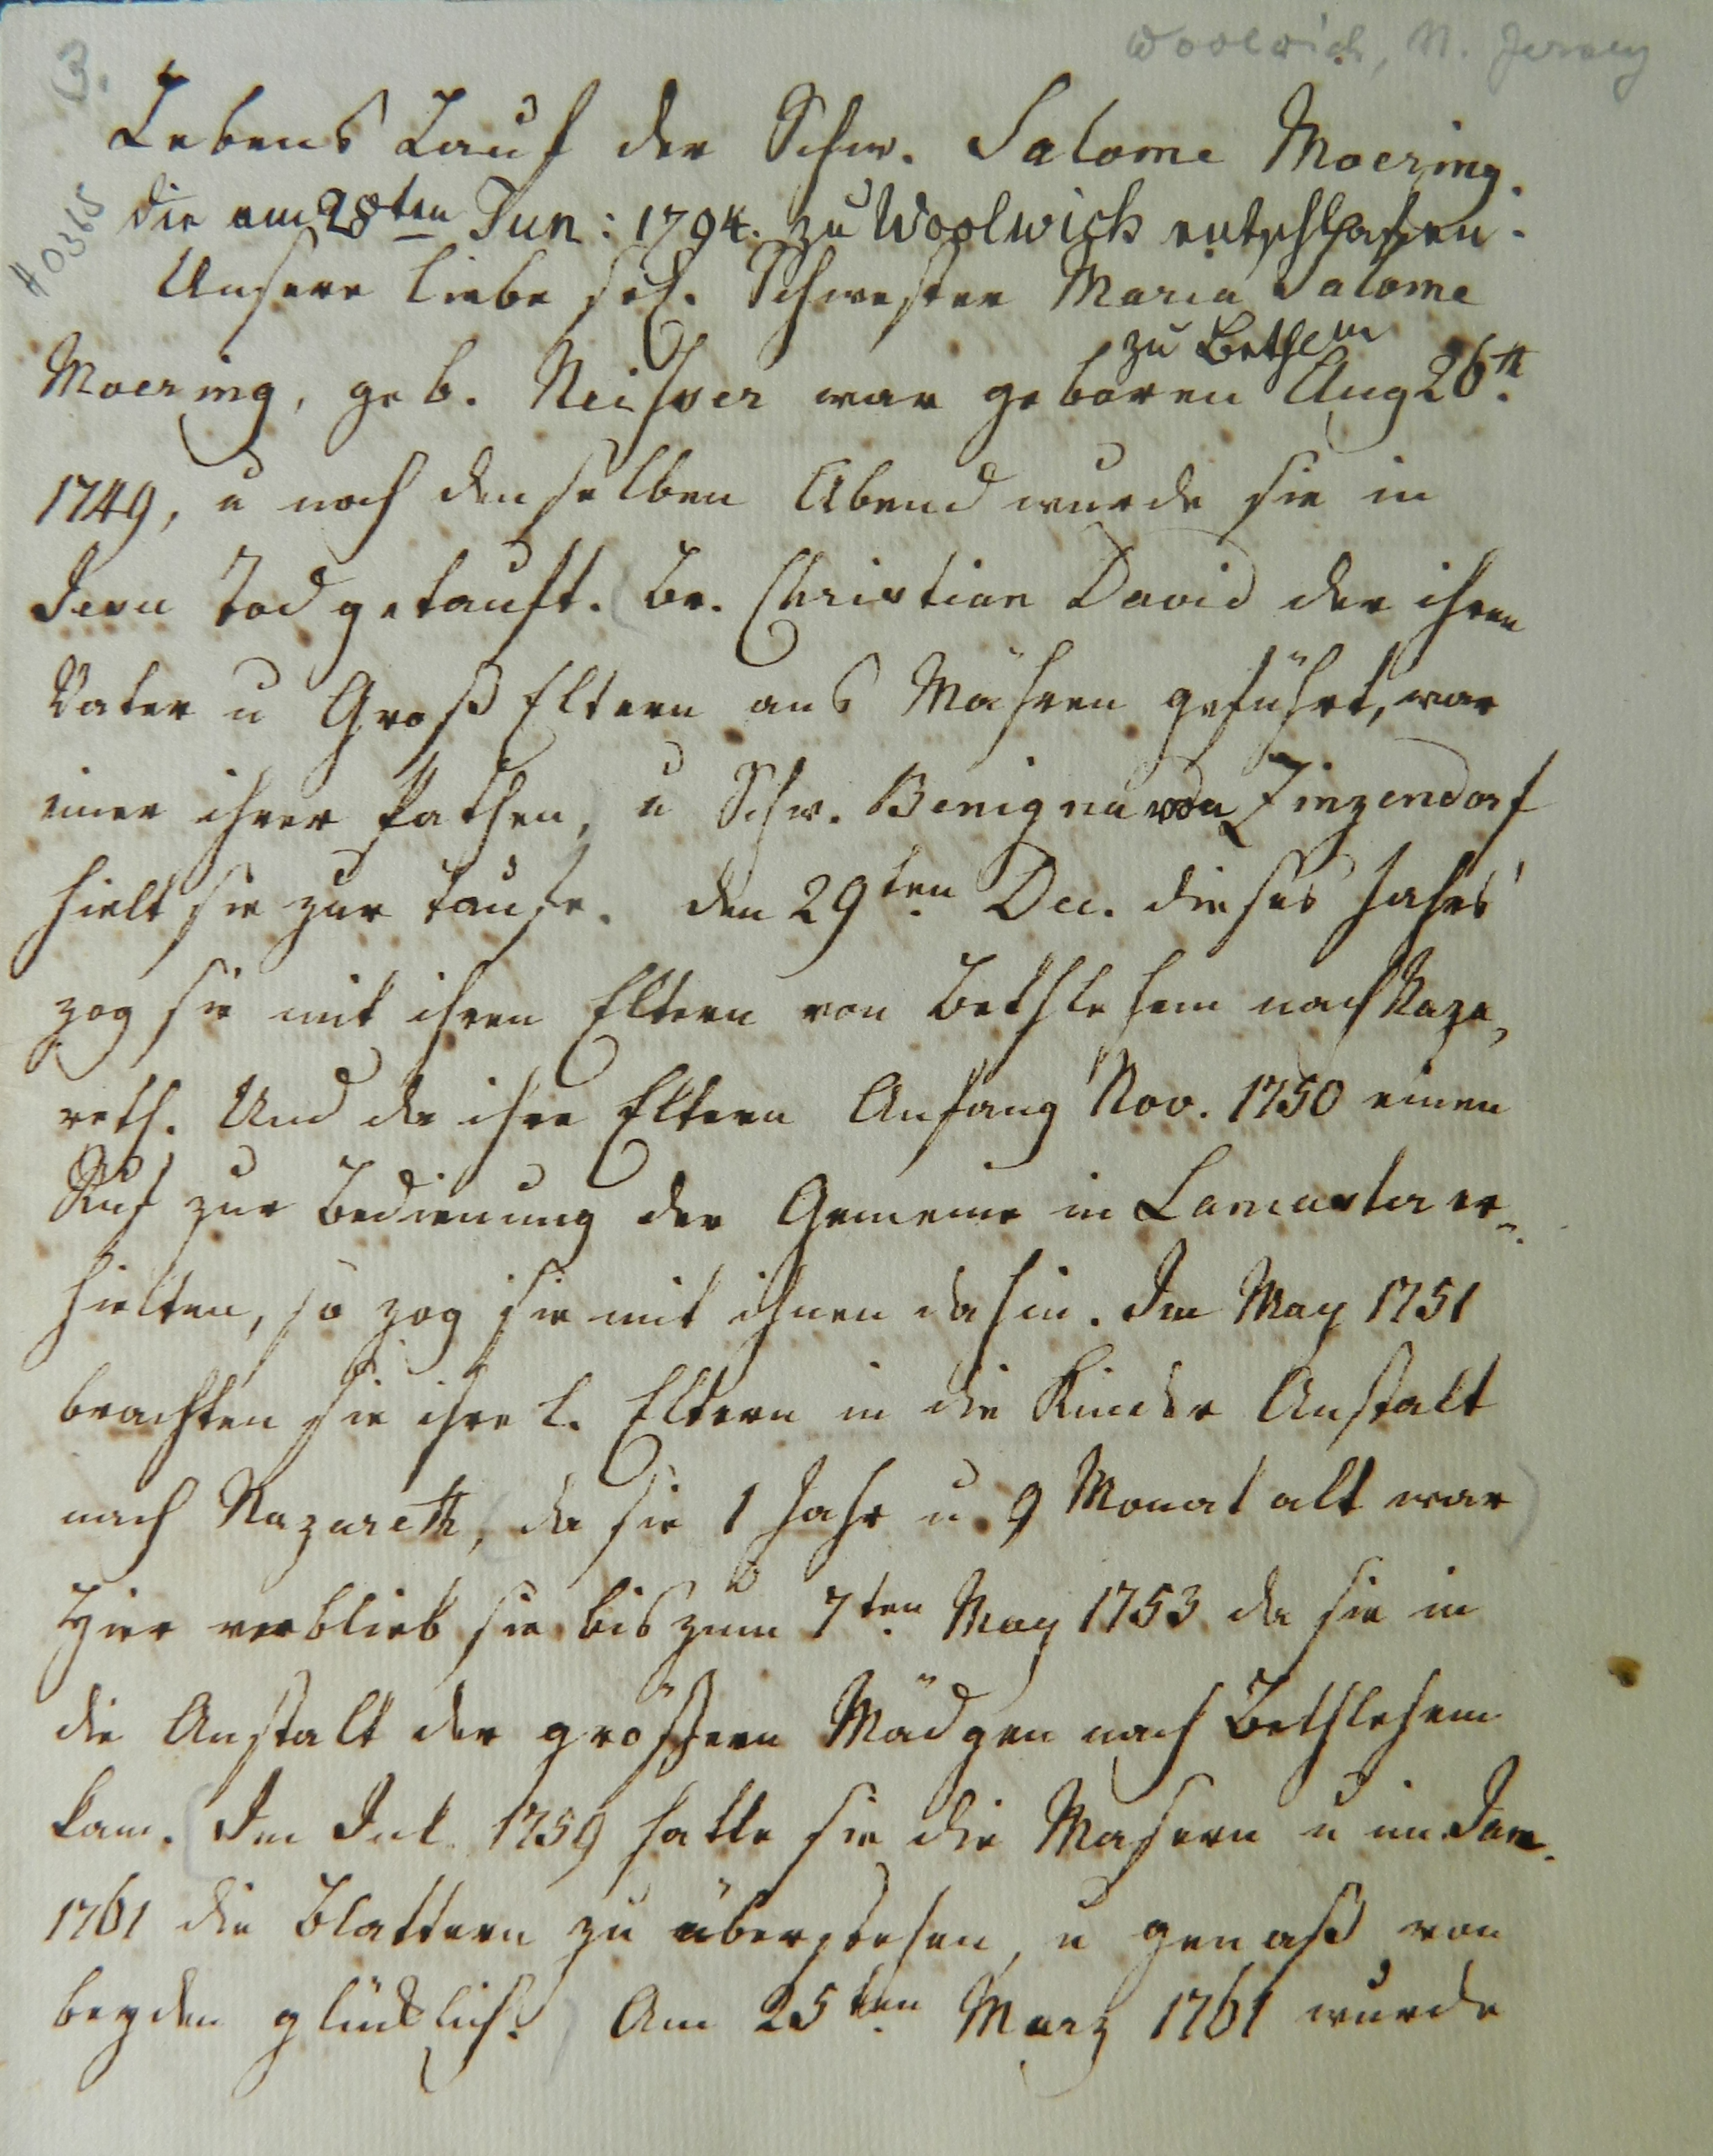 3.
Woolwich, N. Jersey
H 0365
Lebens Lauf der Schw. Salome Moering.
die am 28ten Jun: 1794. zu Woolwich entschlafen.
Unsere liebe sel. Schwester Maria Salome
zu Bethem
Moering, geb. Neisser war geboren Aug 26th.
1749, u noch denselben Abend wurde sie in
Jesu Tod getauft. (Br. Christian David der ihren
Vater u Groß Eltern aus Mähren geführt, war
einer ihrer Pathen, u Schw. Benigna von Zinzendorf
hielt sie zur Taufe. den 29ten Dec. dieses Jahrs
zog sie mit ihren Eltern von Bethlehem nach Naza,
reth. Und da ihre Eltern Anfang Nov. 1750 einen
Ruf zur Bedienung der Gemeine in Lancaster er=
hielten, so zog sie mit ihnen dahin. Im May 1751
brachten sie ihre l. Eltern in die Kinder Anstalt
nach Nazareth, (da sie 1 Jahr u 9 Monat alt war)
Hier verblieb sie bis zum 7ten May 1753 da sie in
die Anstalt der größern Mädgen nach Bethlehem
kam. (Im Jul. 1759 hatte sie die Masern u im Jan.
1761 die Blattern zu überstehen, u genaß von
beyden glücklich.) Am 25ten Marz 1761 wurde